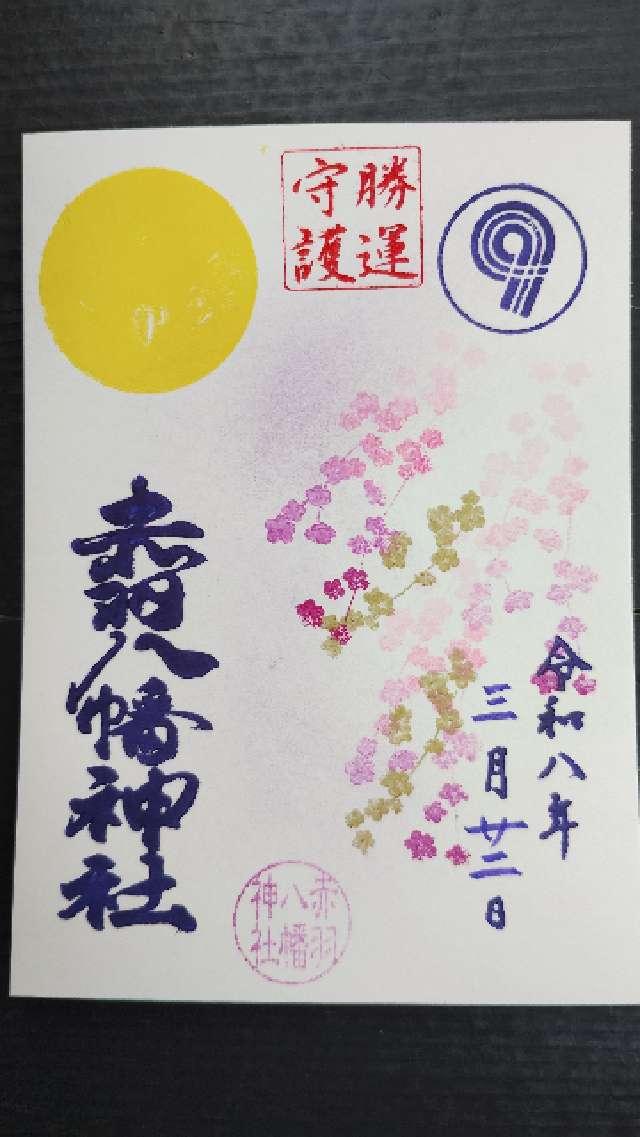 勝運
守護
令和八年
三月廿二日
赤羽八幡神社
赤羽
八幡
神社